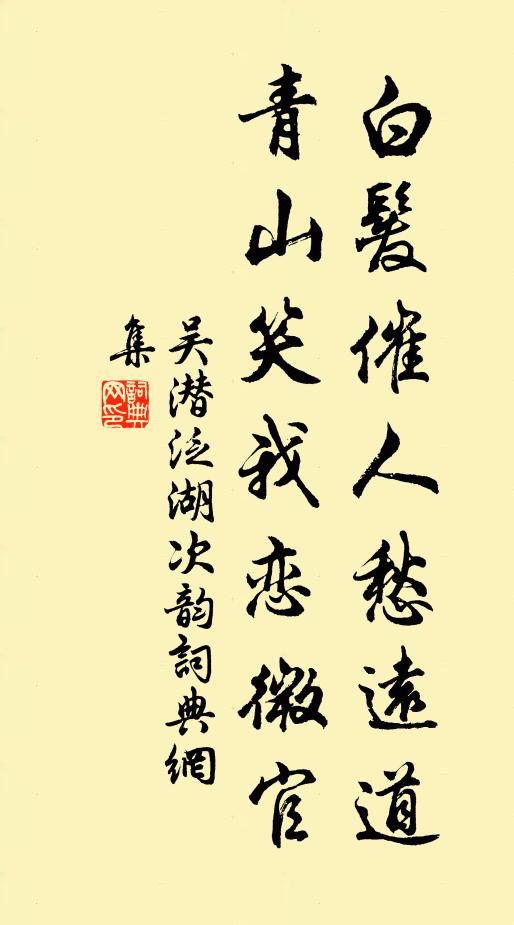 白髮催人愁遠道
青山笑我恋微官
吴潜泛湖次韵詞典網
集
詞典網印